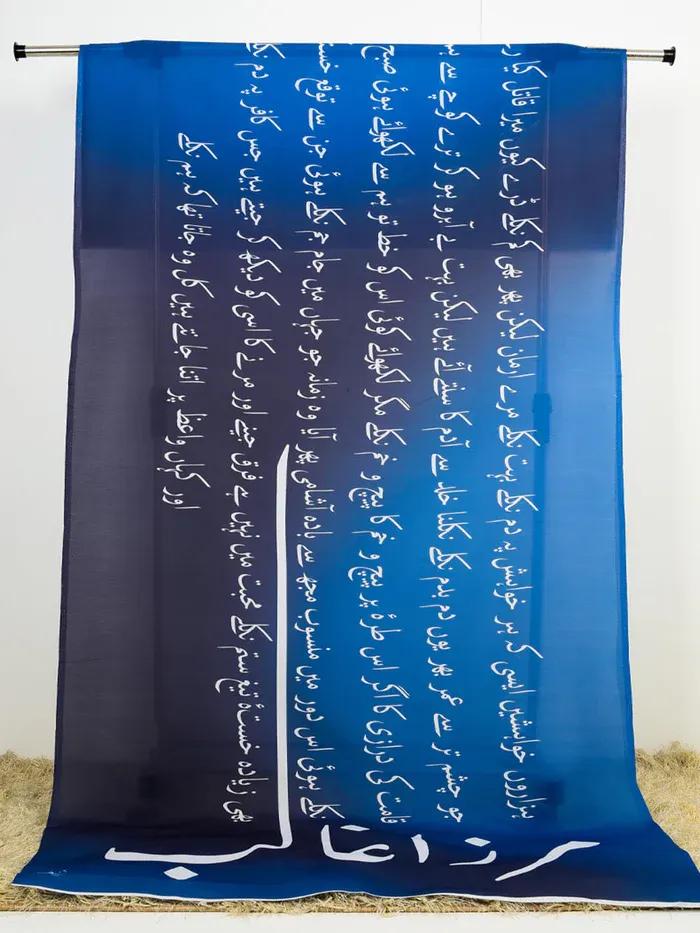 ہزاروں خواہشیں ایسی کہ ہر خواہش پہ دم نکلے بہت نکلے مرے ارمان لیکن پھر بھی کم نکلے ڈرے کیوں میرا قاتل کیا
جو چشم تر سے عمر بھر یوں دم بدم نکلے نکلنا خلد سے آدم کا سنتے آئے ہیں لیکن بہت بے آبرو ہو کر ترے کوچے سے
قامت کی درازی کا اگر اس طرۂ پر پیچ و خم کا پیچ و خم نکلے مگر لکھوائے کوئی اس کو خط تو ہم سے لکھوائے ہوئی صبح
نکلے ہوئی اس دور میں منسوب مجھ سے بادہ آشامی پھر آیا وہ زمانہ جو جہاں میں جام جم نکلے ہوئی جن سے توقع
بھی زیادہ خستۂ تیغ ستم نکلے محبت میں نہیں ہے فرق جینے اور مرنے کا اسی کو دیکھ کر جیتے ہیں جس کافر پہ دم نکلے
اور کہاں واعظ پر اتنا جانتے ہیں کل وہ جاتا تھا کہ ہم نکلے
مرزا غالب